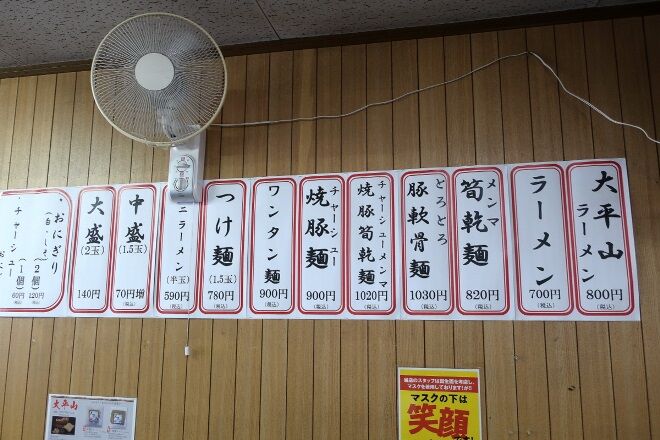 大平山
ラーメン
800円
(税込)
ラーメン
700円
(税込)
メンマ
筍乾麺
820円
(税込)
とろとろ
豚軟骨麺
1030円
(税込)
チャーシューメンマ
焼豚筍乾麺
1020円
(税込)
チャーシュー
焼豚麺
900円
(税込)
ワンタン麺
900円
(税込)
つけ麺
(1.5玉)
780円
(税込)
ニラーメン
(半玉)
590円
(税込)
中盛
(1.5玉)
70円増
(税込)
大盛
(2玉)
140円
(税込)
・おにぎり
(2個)
120円
(税込)
・チャーシュー
(1個)
60円
(税込)
大平山
当店のスタッフは衛生面を考慮し、
マスクを使用しております!が!
マスクの下は
笑顔
です!